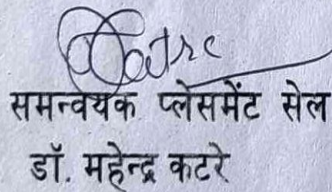 समन्वयक प्लेसमेंट सेल
डॉ. महेन्द्र कटरे